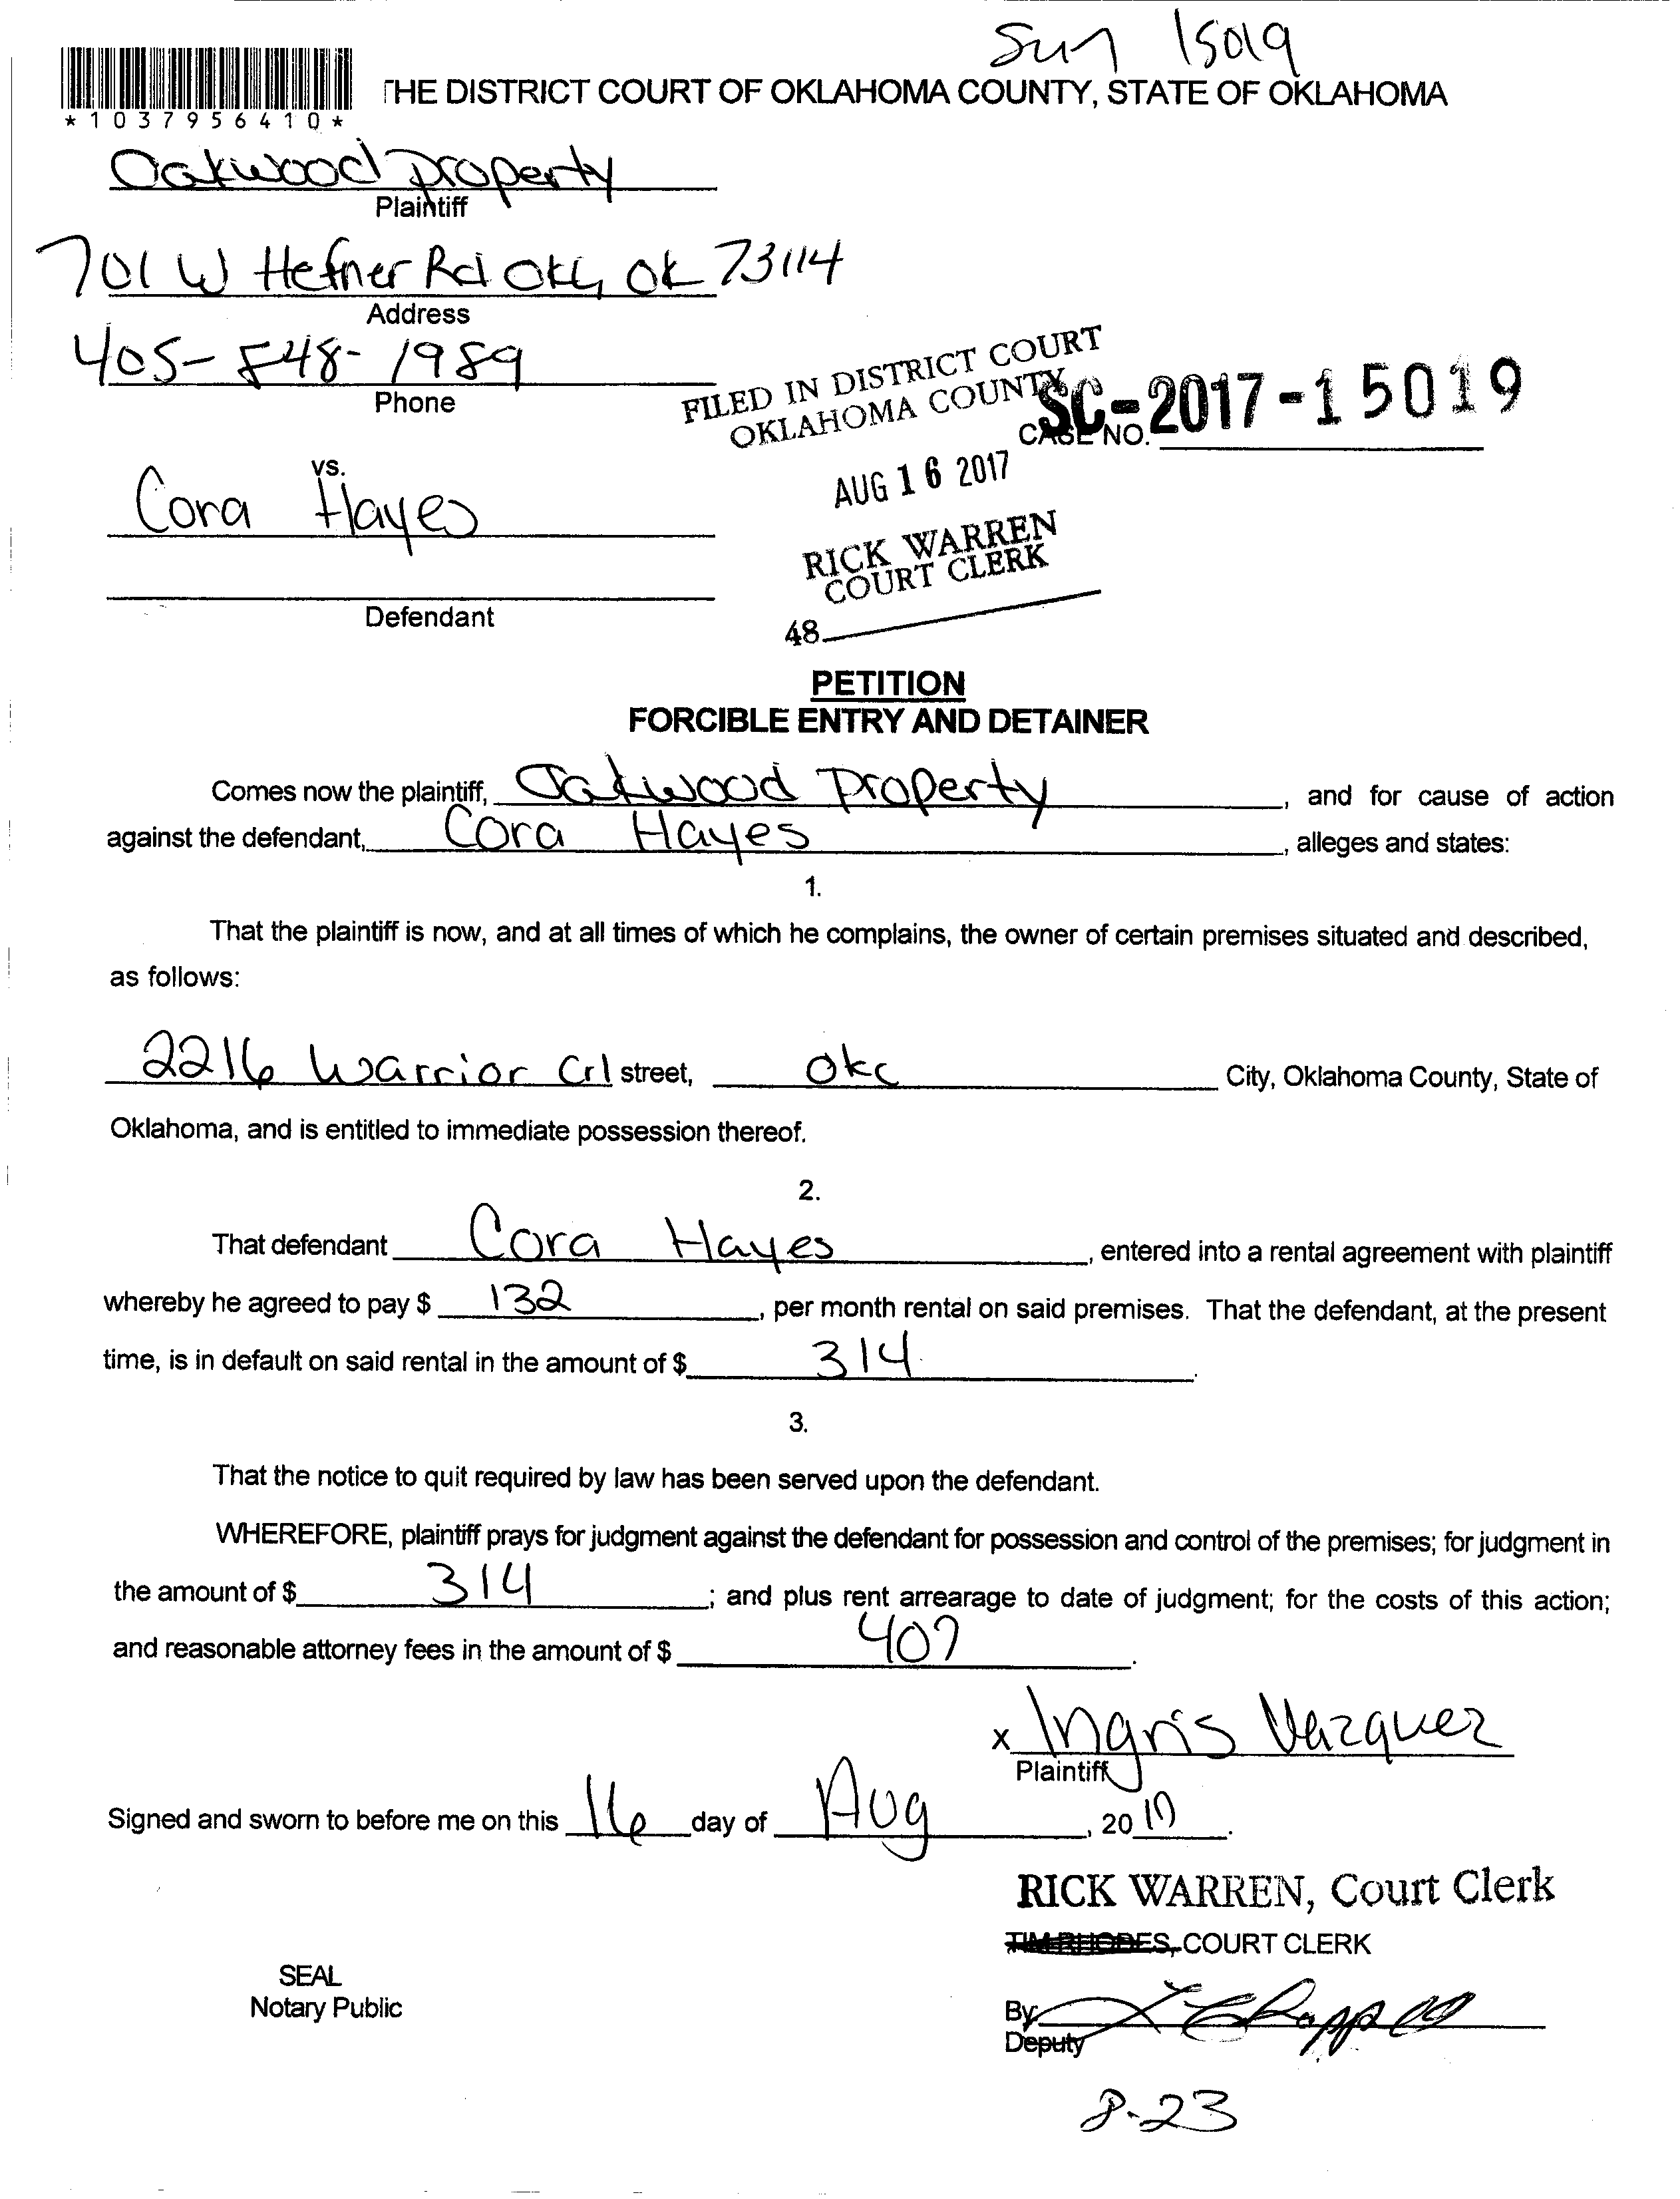 Sum 15019
THE DISTRICT COURT OF OKLAHOMA COUNTY, STATE OF OKLAHOMA
*1037956410*
Oakwood Property
Plaintiff
701 W Hefner Rd OKC, OK 73114
Address
405-848-1989
Phone
FILED IN DISTRICT COURT
OKLAHOMA COUNTY
CASE NO. SC-2017-15019
vs.
AUG 16 2017
Cora Hayes
RICK WARREN
COURT CLERK
Defendant
48
PETITION
FORCIBLE ENTRY AND DETAINER
Comes now the plaintiff, Oakwood Property, and for cause of action
against the defendant, Cora Hayes, alleges and states:
1.
That the plaintiff is now, and at all times of which he complains, the owner of certain premises situated and described,
as follows:
2216 Warrior Crl street, Okc City, Oklahoma County, State of
Oklahoma, and is entitled to immediate possession thereof.
2.
That defendant Cora Hayes, entered into a rental agreement with plaintiff
whereby he agreed to pay $ 132, per month rental on said premises. That the defendant, at the present
time, is in default on said rental in the amount of $ 314.
3.
That the notice to quit required by law has been served upon the defendant.
WHEREFORE, plaintiff prays for judgment against the defendant for possession and control of the premises; for judgment in
the amount of $ 314; and plus rent arrearage to date of judgment; for the costs of this action;
and reasonable attorney fees in the amount of $ 407.
x Ingris Vazquez
Plaintiff
Signed and sworn to before me on this 16 day of Aug, 2017.
RICK WARREN, Court Clerk
TIM RHODES, COURT CLERK
SEAL
Notary Public
By
Deputy
8-23